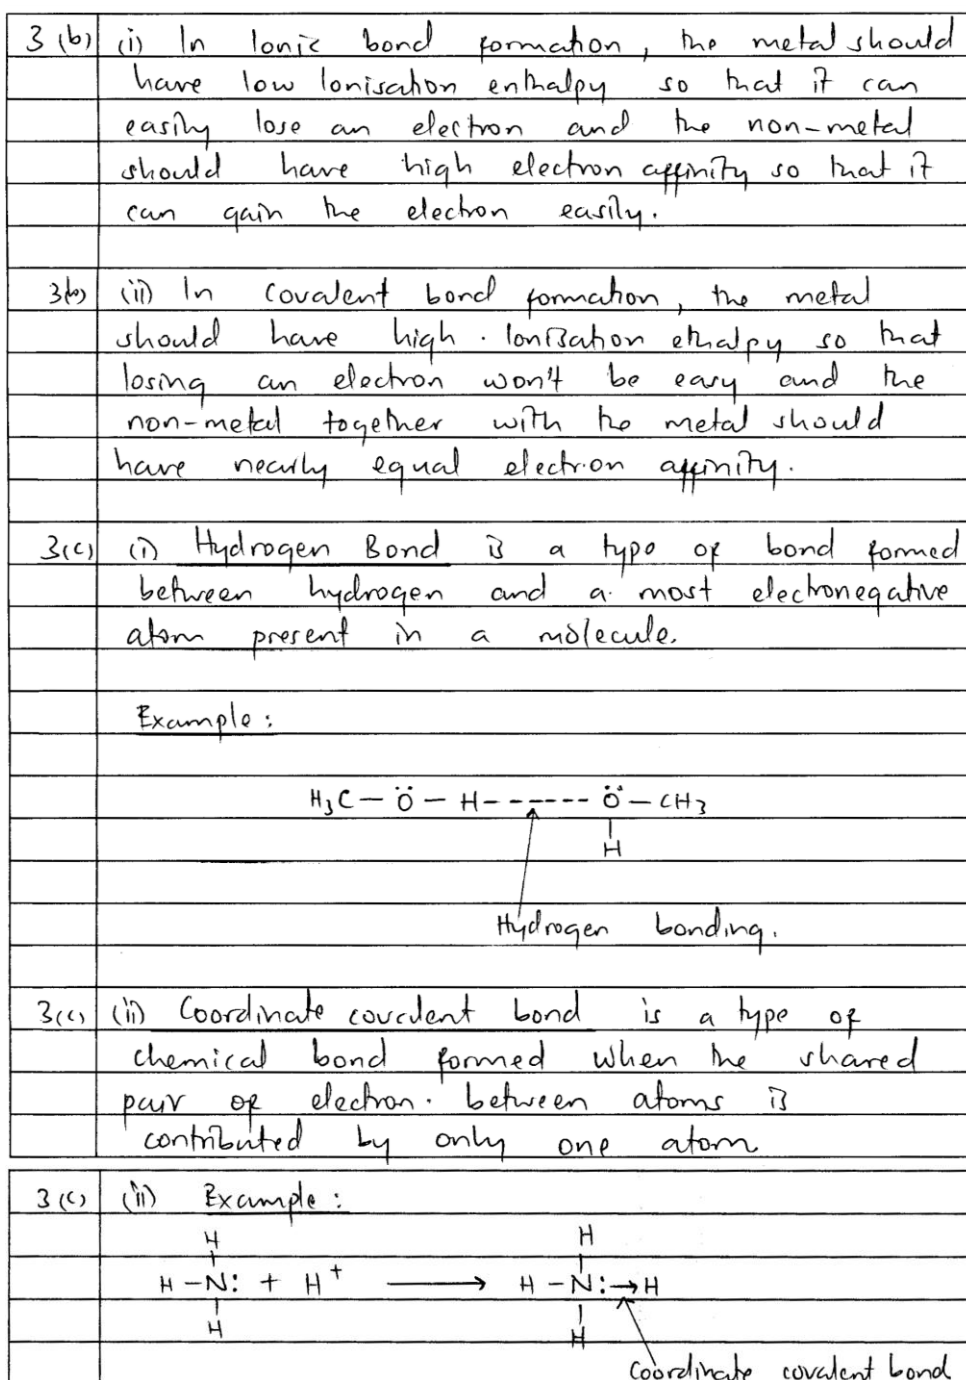 3 (b) (i) In Ionic bond formation, the metal should
have low Ionisation enthalpy so that it can
easily lose an electron and the non-metal
should have high electron affinity so that it
can gain the electron easily.
3(b) (ii) In covalent bond formation, the metal
should have high. Ionisation ethalpy so that
losing an electron won't be easy and the
non-metal together with the metal should
have nearly equal electron affinity.
3(c) (i) Hydrogen Bond is a type of bond formed
between hydrogen and a most electronegative
atom present in a molecule.
Example:
H₃C — Ö — H ------ Ö — CH₃
H
Hydrogen bonding.
3(c) (ii) Coordinate covalent bond is a type of
chemical bond formed when the shared
pair of electron. between atoms is
contributed by only one atom
3(c) (ii) Example:
H H
H – N: + H⁺ ⟶ H – N:→H
H H
Coordinate covalent bond